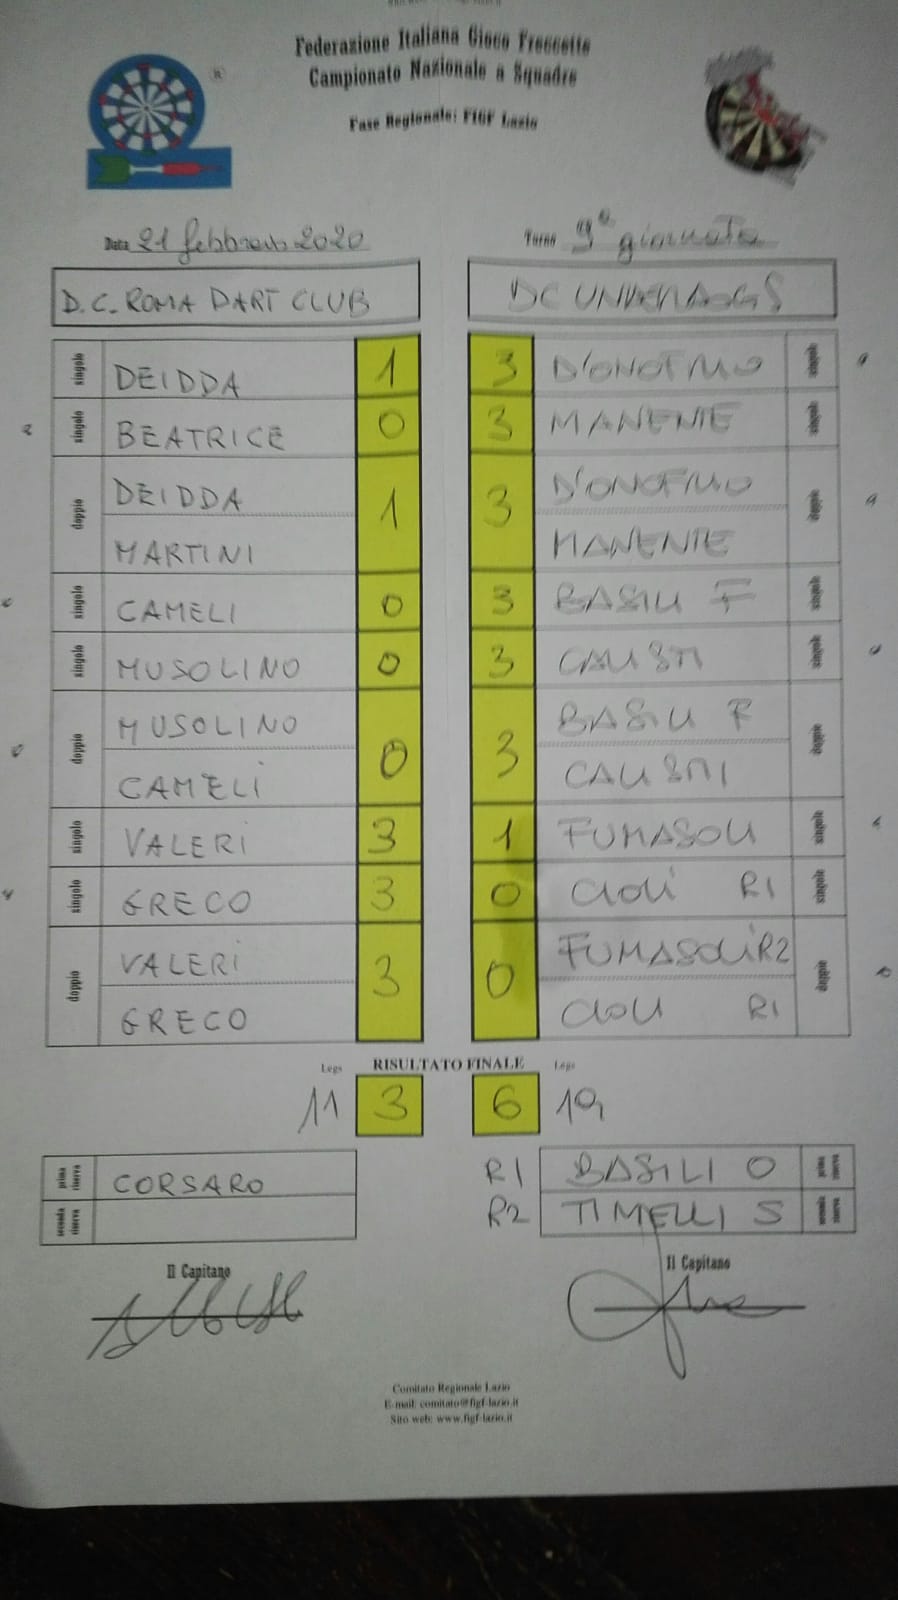 Federazione Italiana Gioco Freccette
Campionato Nazionale a Squadre
Fase Regionale: FIGF Lazio
®
Data 21 febbraio 2020 Turno 9ª giornata
D.C. ROMA DART CLUB DC UNDERDOGS
singolo DEIDDA 1 3 D'ONOFRIO singolo
singolo BEATRICE 0 3 MANENTE singolo
doppio DEIDDA 1 3 D'ONOFRIO doppio
MARTINI MANENTE
singolo CAMELI 0 3 BASILI F singolo
singolo MUSOLINO 0 3 CALISTI singolo
doppio MUSOLINO 0 3 BASILI F doppio
CAMELI CALISTI
singolo VALERI 3 1 FUMASOLI singolo
singolo GRECO 3 0 CIOLI R1 singolo
doppio VALERI 3 0 FUMASOLI R2 doppio
GRECO CIOLI R1
Legs RISULTATO FINALE Legs
11 3 6 19
prima riserva CORSARO R1 BASILI O prima riserva
seconda riserva R2 TIMELLI S seconda riserva
Il Capitano Il Capitano
Comitato Regionale Lazio
E-mail: comitato@figf-lazio.it
Sito web: www.figf-lazio.it